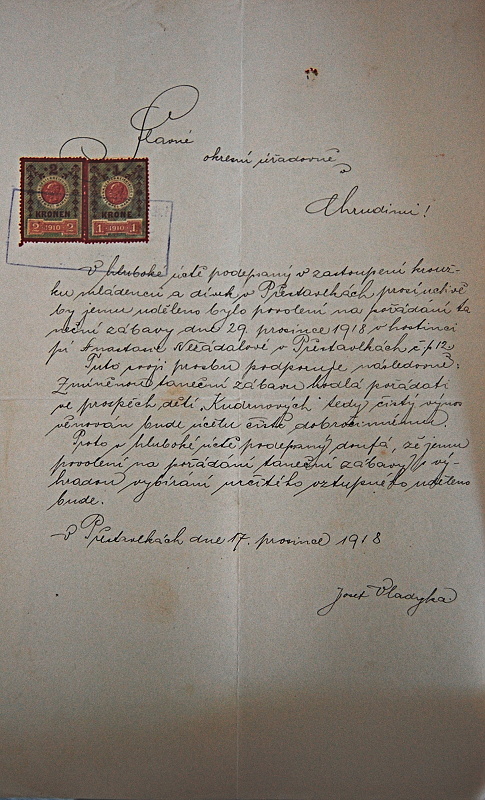 Slavné
okresní úřadovně
v
Chrudimi!
2 KRONEN 2 1910 2
1 KRONE 1 1910 1
V hluboké úctě podepsaný v zastoupení krouž-
ku mládenců a dívek v Přestavlkách prosí uctivě
by jemu uděleno bylo povolení na pořádání ta
neční zábavy dne 29. prosince 1918 v hostinci
pí Anastasie Neřádalové v Přestavlkách č p 12.
Tuto svoji prosbu podporuje následovně:
Zmíněnou taneční zábavu hodlá pořádati
ve prospěch dětí „Kudrnových" tedy čistý výnos
věnován bude účelu čistě dobročinnému.
Proto v hluboké úctě podepsaný doufá, že jemu
povolení na pořádání taneční zábavy s vý-
hradou vybírání určitého vstupného uděleno
bude.
V Přestavlkách dne 17. prosince 1918
Josef Vladyka